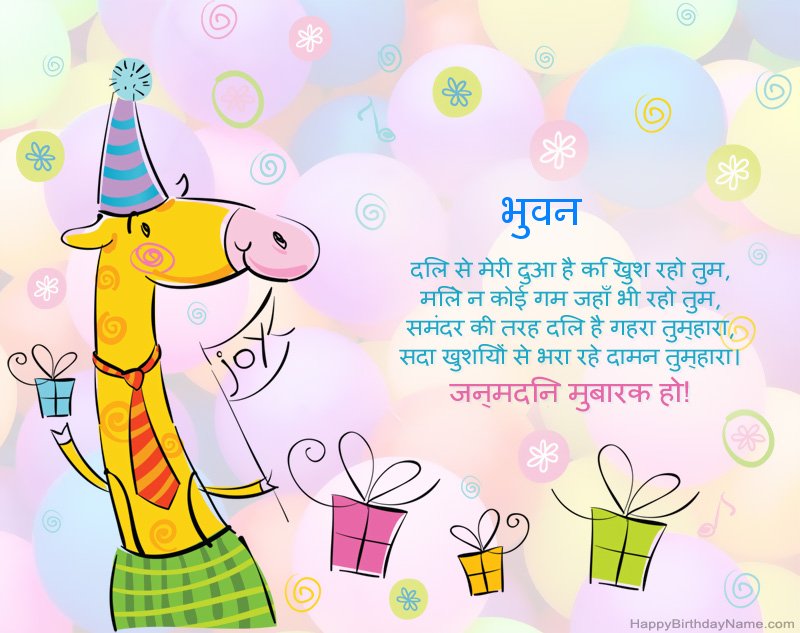 भुवन
दिल से मेरी दुआ है कि खुश रहो तुम,
मिले न कोई गम जहाँ भी रहो तुम,
समंदर की तरह दिल है गहरा तुम्हारा,
सदा खुशियों से भरा रहे दामन तुम्हारा।
जन्मदिन मुबारक हो!
joy
HappyBirthdayName.com